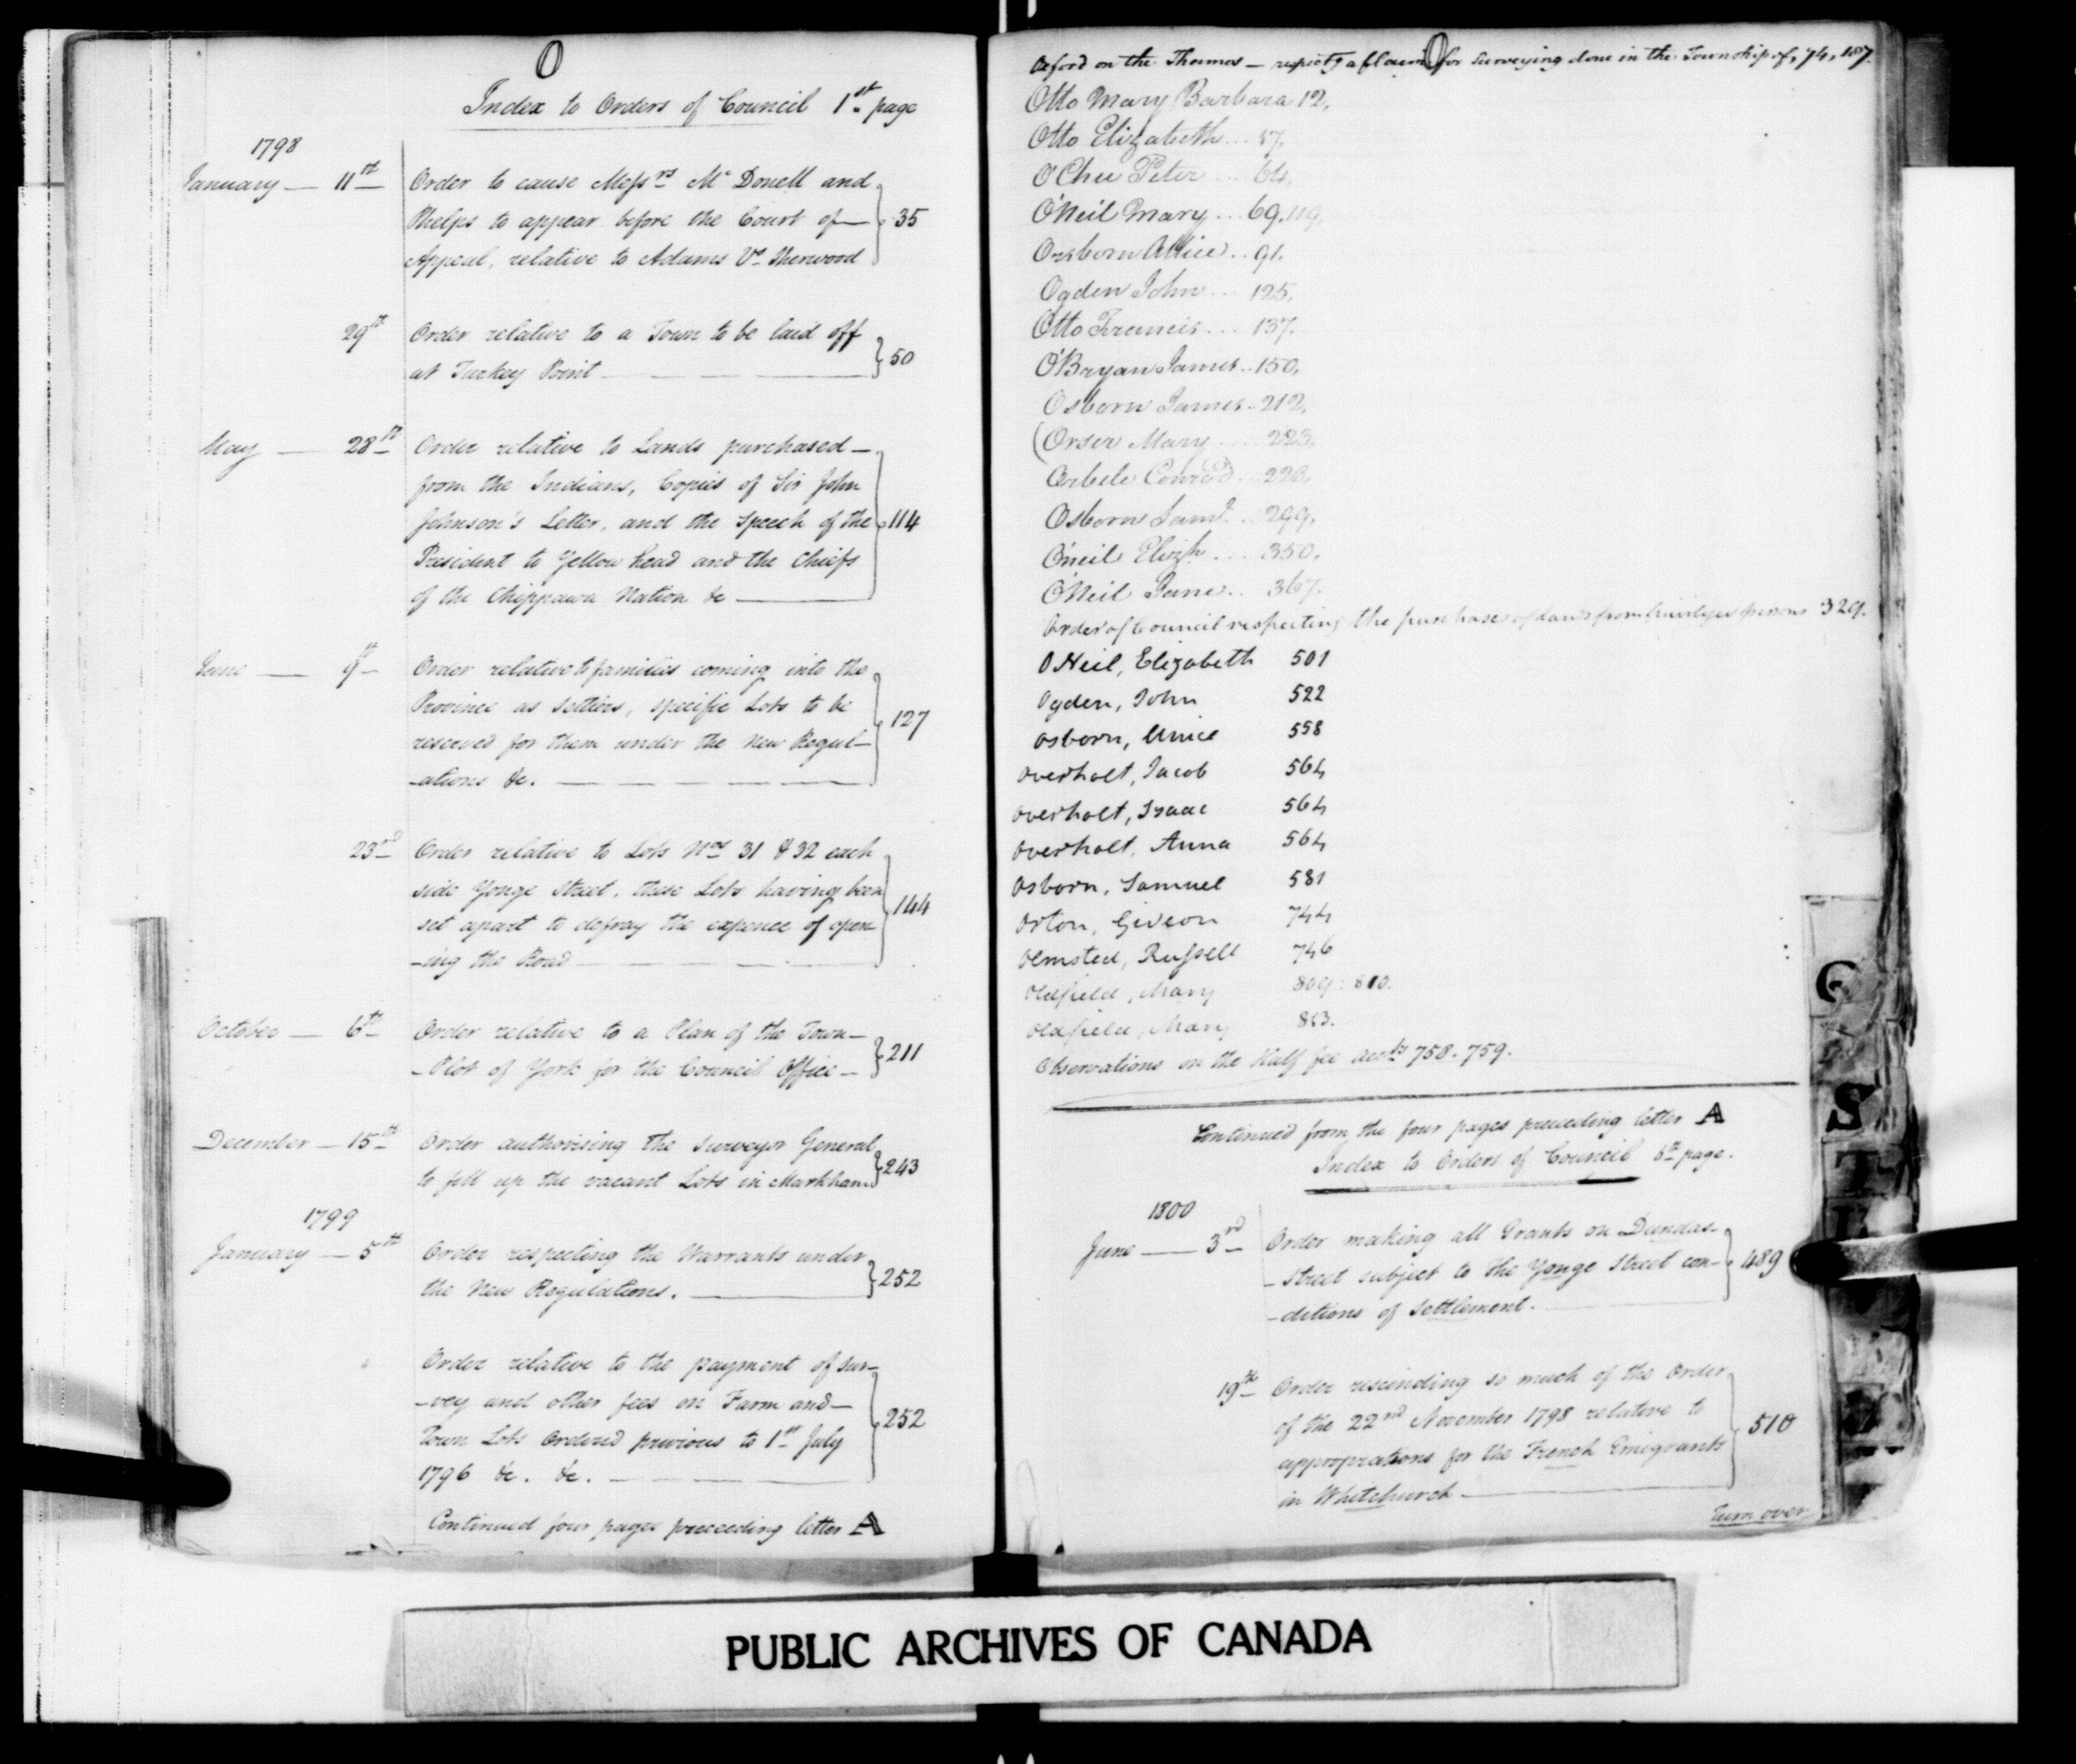 O
Index to Orders of Council 1st page
1798
January — 11th Order to cause Messrs McDonell and
Phelps to appear before the Court of
Appeal, relative to Adams Vs Sherwood } 35
29th Order relative to a Town to be laid off
at Turkey Point } 50
May — 28th Order relative to Lands purchased
from the Indians, Copies of Sir John
Johnson's Letter, and the Speech of the } 114
President to Yellow head and the Chiefs
of the Chippawa Nation &c
June — 9th Order relative to families coming into the
Province as settlers, specific Lots to be } 127
reserved for them under the New Regul-
-ations &c.
23rd Order relative to Lots Nos 31 & 32 each
side Yonge Street, these Lots having been } 144
set apart to defray the expence of open-
-ing the Road
October — 6th Order relative to a Plan of the Town-
-Plot of York for the Council Office } 211
December — 15th Order authorising the Surveyor General
to fill up the vacant Lots in Markham } 243
1799
January — 5th Order respecting the Warrants under
the New Regulations. } 252
Order relative to the payment of sur-
-vey and other fees on Farm and
Town Lots Ordered previous to 1st July } 252
1796 &c. &c.
Continued four pages preceeding letter A
O
Oxford on the Thames — respectg a claim for surveying done in the Township of, 74, 187.
Otto Mary Barbara 12,
Otto Elizabeth ... 57,
O'Neil Mary ... 69. 119.
Osborn Allice .. 91.
Ogden John ... 125,
Otto Francis ... 137.
O'Bryan James .. 150,
Osborn James .. 212,
(Orser Mary .... 223,
Osborn Saml .. 299,
O'neil Elizh .... 350,
O'Neil Jane .. 367.
Order of Council respecting the purchases of Lands from privileged persons 329.
O Neil, Elizabeth 501
Ogden, John 522
Osborn, Unice 558
Overholt, Jacob 564
Overholt, Isaac 564
Overholt, Anna 564
Osborn, Samuel 581
Orton, Gideon 744
Olmsted, Russell 746
Oldfield, Mary 809 : 810.
Oldfield, Mary
Observations on the Half fee accts 758. 759.
Continued from the four pages preceeding letter A
Index to Orders of Council 6th page.
1800
June — 3rd Order making all Grants on Dundas-
-Street subject to the Yonge Street con- } 489
-ditions of settlement.
19th Order rescinding so much of the Order
of the 22nd November 1798 relative to } 510
appropriations for the French Emigrants
in Whitchurch
Turn over
Q
S
T
PUBLIC ARCHIVES OF CANADA